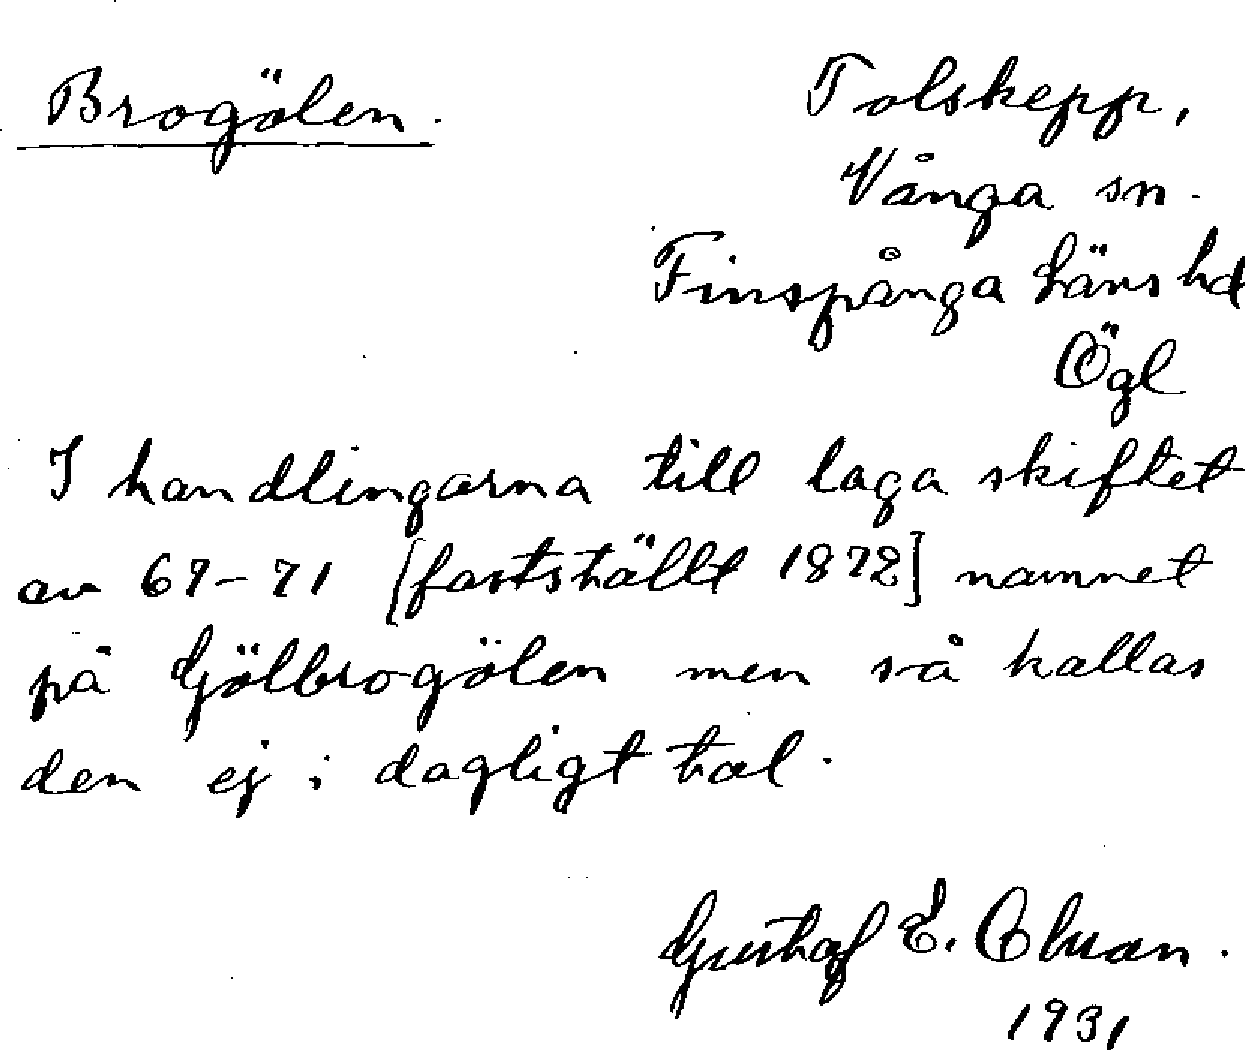 Brogölen.
Tolskepp,
Vånga sn.
Finspånga läns hd
Ögl
I handlingarna till laga skiftet
av 67-71 [fastställt 1872] namnet
på Gjölbrogölen men så kallas
den ej i dagligt tal.
Gustaf E.
1931